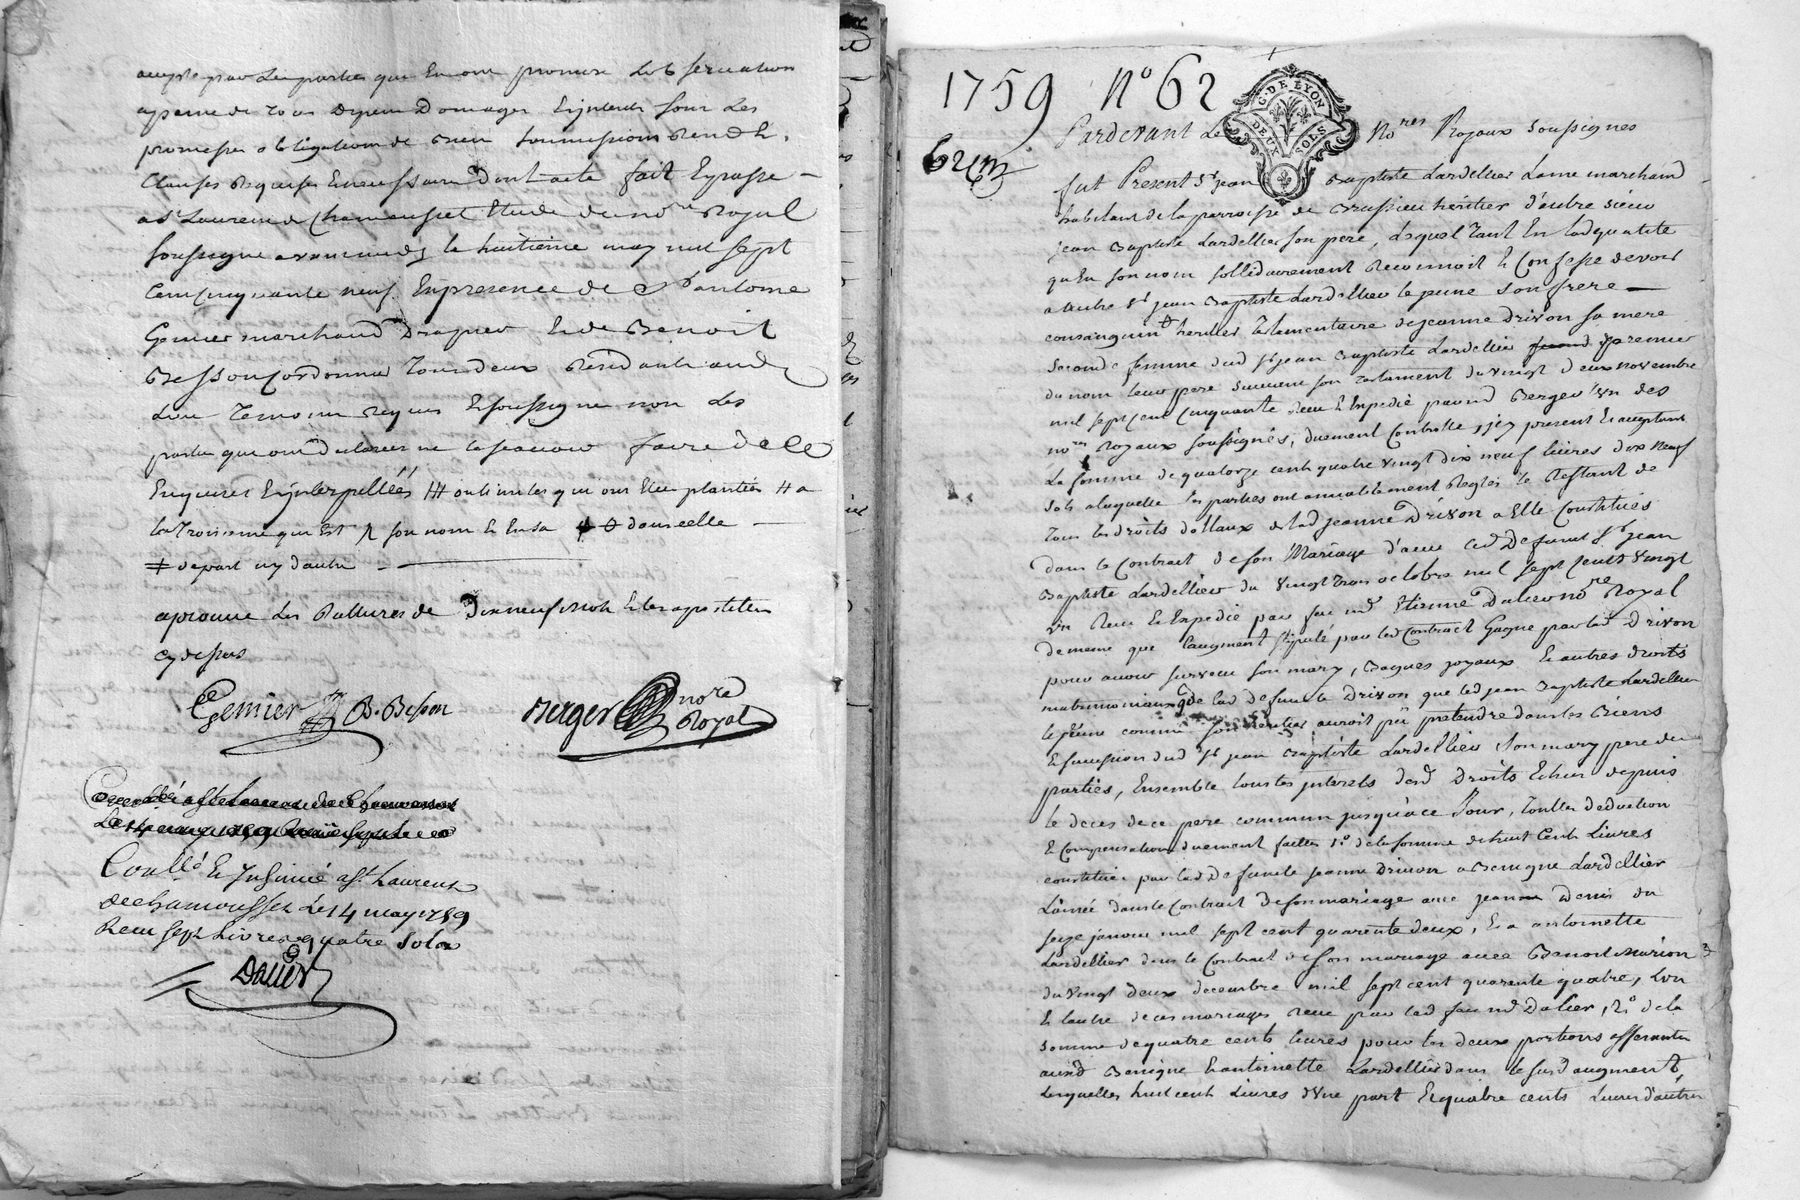 accepté par les parties qui en ont promis l'observation
a peine de tous depens Domages Interets sous les
promesses obligations de biens soumissions Rend de
Clauses Requises Et necessaires dont acte fait Et passe
a St Laurens de Chamousset Etude du nore Royal
soussigne avant midy le huitieme may mil sept
Cent cinquante neuf En presence de Sr antoine
Gemier marchand Drapier Et de Benoit
Besson Cordonnier Tous deux Residants aud
Lieu Temoins requis Et soussignes non les
parties qui ont declarees ne le scavoir faire de ce
Enquises Et interpellées
la Troisieme qui est son nom Et en sa # O d'ou icelle
# depart ny d'autre
aprouvé Les Ratures de Dix neuf mots Et les apostilles
Cy dessus
Gemier B. Besson Berger nore Royal
Coullé Et Insinué a St Laurens
de chamousset Le 14 may 1759
Receu sept livres quatre sols
Dalier
1759 No 62
G. DE LYON
DEUX SOLS
Pardevant Les Nores Royaux soussignes
62 em
fut Present Sr jean Baptiste Lardellier Laine marchand
habitant de la parroisse de Brussieu heritier d'autre sieur
jean Baptiste Lardellier son pere, Lequel Tant En lad qualité
qu'En son nom sollidairement Reconnoit Et Confesse devoir
a autre Sr jean Baptiste Lardellier le jeune son frere
consanguin heritier Testamentaire de jeanne Drivon sa mere
seconde femme dud Sr jean Baptiste Lardellier premier
du nom leur pere suivant son Testament du vingt deux novembre
mil sept cent cinquante Receu Et Expedié par md Berger l'un des
nores Royaux soussignés, duement Controllé, jcy present Et acceptant
La somme de quatorze cents quatre vingt dix neuf livres dix neuf
sols a laquelle les parties ont amiablement Reglés le Restant de
Tous les droits dottaux de lad jeanne Drivon a Elle Constitués
dans le Contract de son Mariage d'avec led Defunt Sr jean
Baptiste Lardellier du vingt trois octobre mil sept cents vingt
un Receu Et Expedié par feu md Etienne Dalier nore Royal
de meme que l'augment stipulé par led Contract Gagné par lad Drivon
pour avoir survecu son mary, Bagues joyaux Et autres droits
matrimoniaux de lad defunte Drivon que led jean Baptiste Lardellier
le jeune comme son heritier auroit pû pretendre dans les Biens
Et succession dud Sr jean Baptiste Lardellier son mary pere des
parties, Ensemble tous les interets desd Droits Echus depuis
le deces de ce pere commun jusqu'à ce Jour, toutes deduction
Et Compensation duement faittes 1o de la somme de huit Cents Livres
constituée par lad Defunte jeanne Drivon a Benigne Lardellier
L'ainée dans le Contract de son mariage avec jean Denis du
seize janvier mil sept cent quarente deux, Et a antoinette
Lardellier dans le Contract de son mariage avec Benoit Marion
du vingt deux decembre mil sept cent quarente quatre, L'un
Et l'autre de ces mariages Receu par led feu md Dalier, 2o de la
somme de quatre cents livres pour les deux portions afferantes
auxd Benigne Et antoinette Lardellier dans le susd augment,
Lesquelles huit cent Livres d'Une part Et quatre cents Livres d'autre